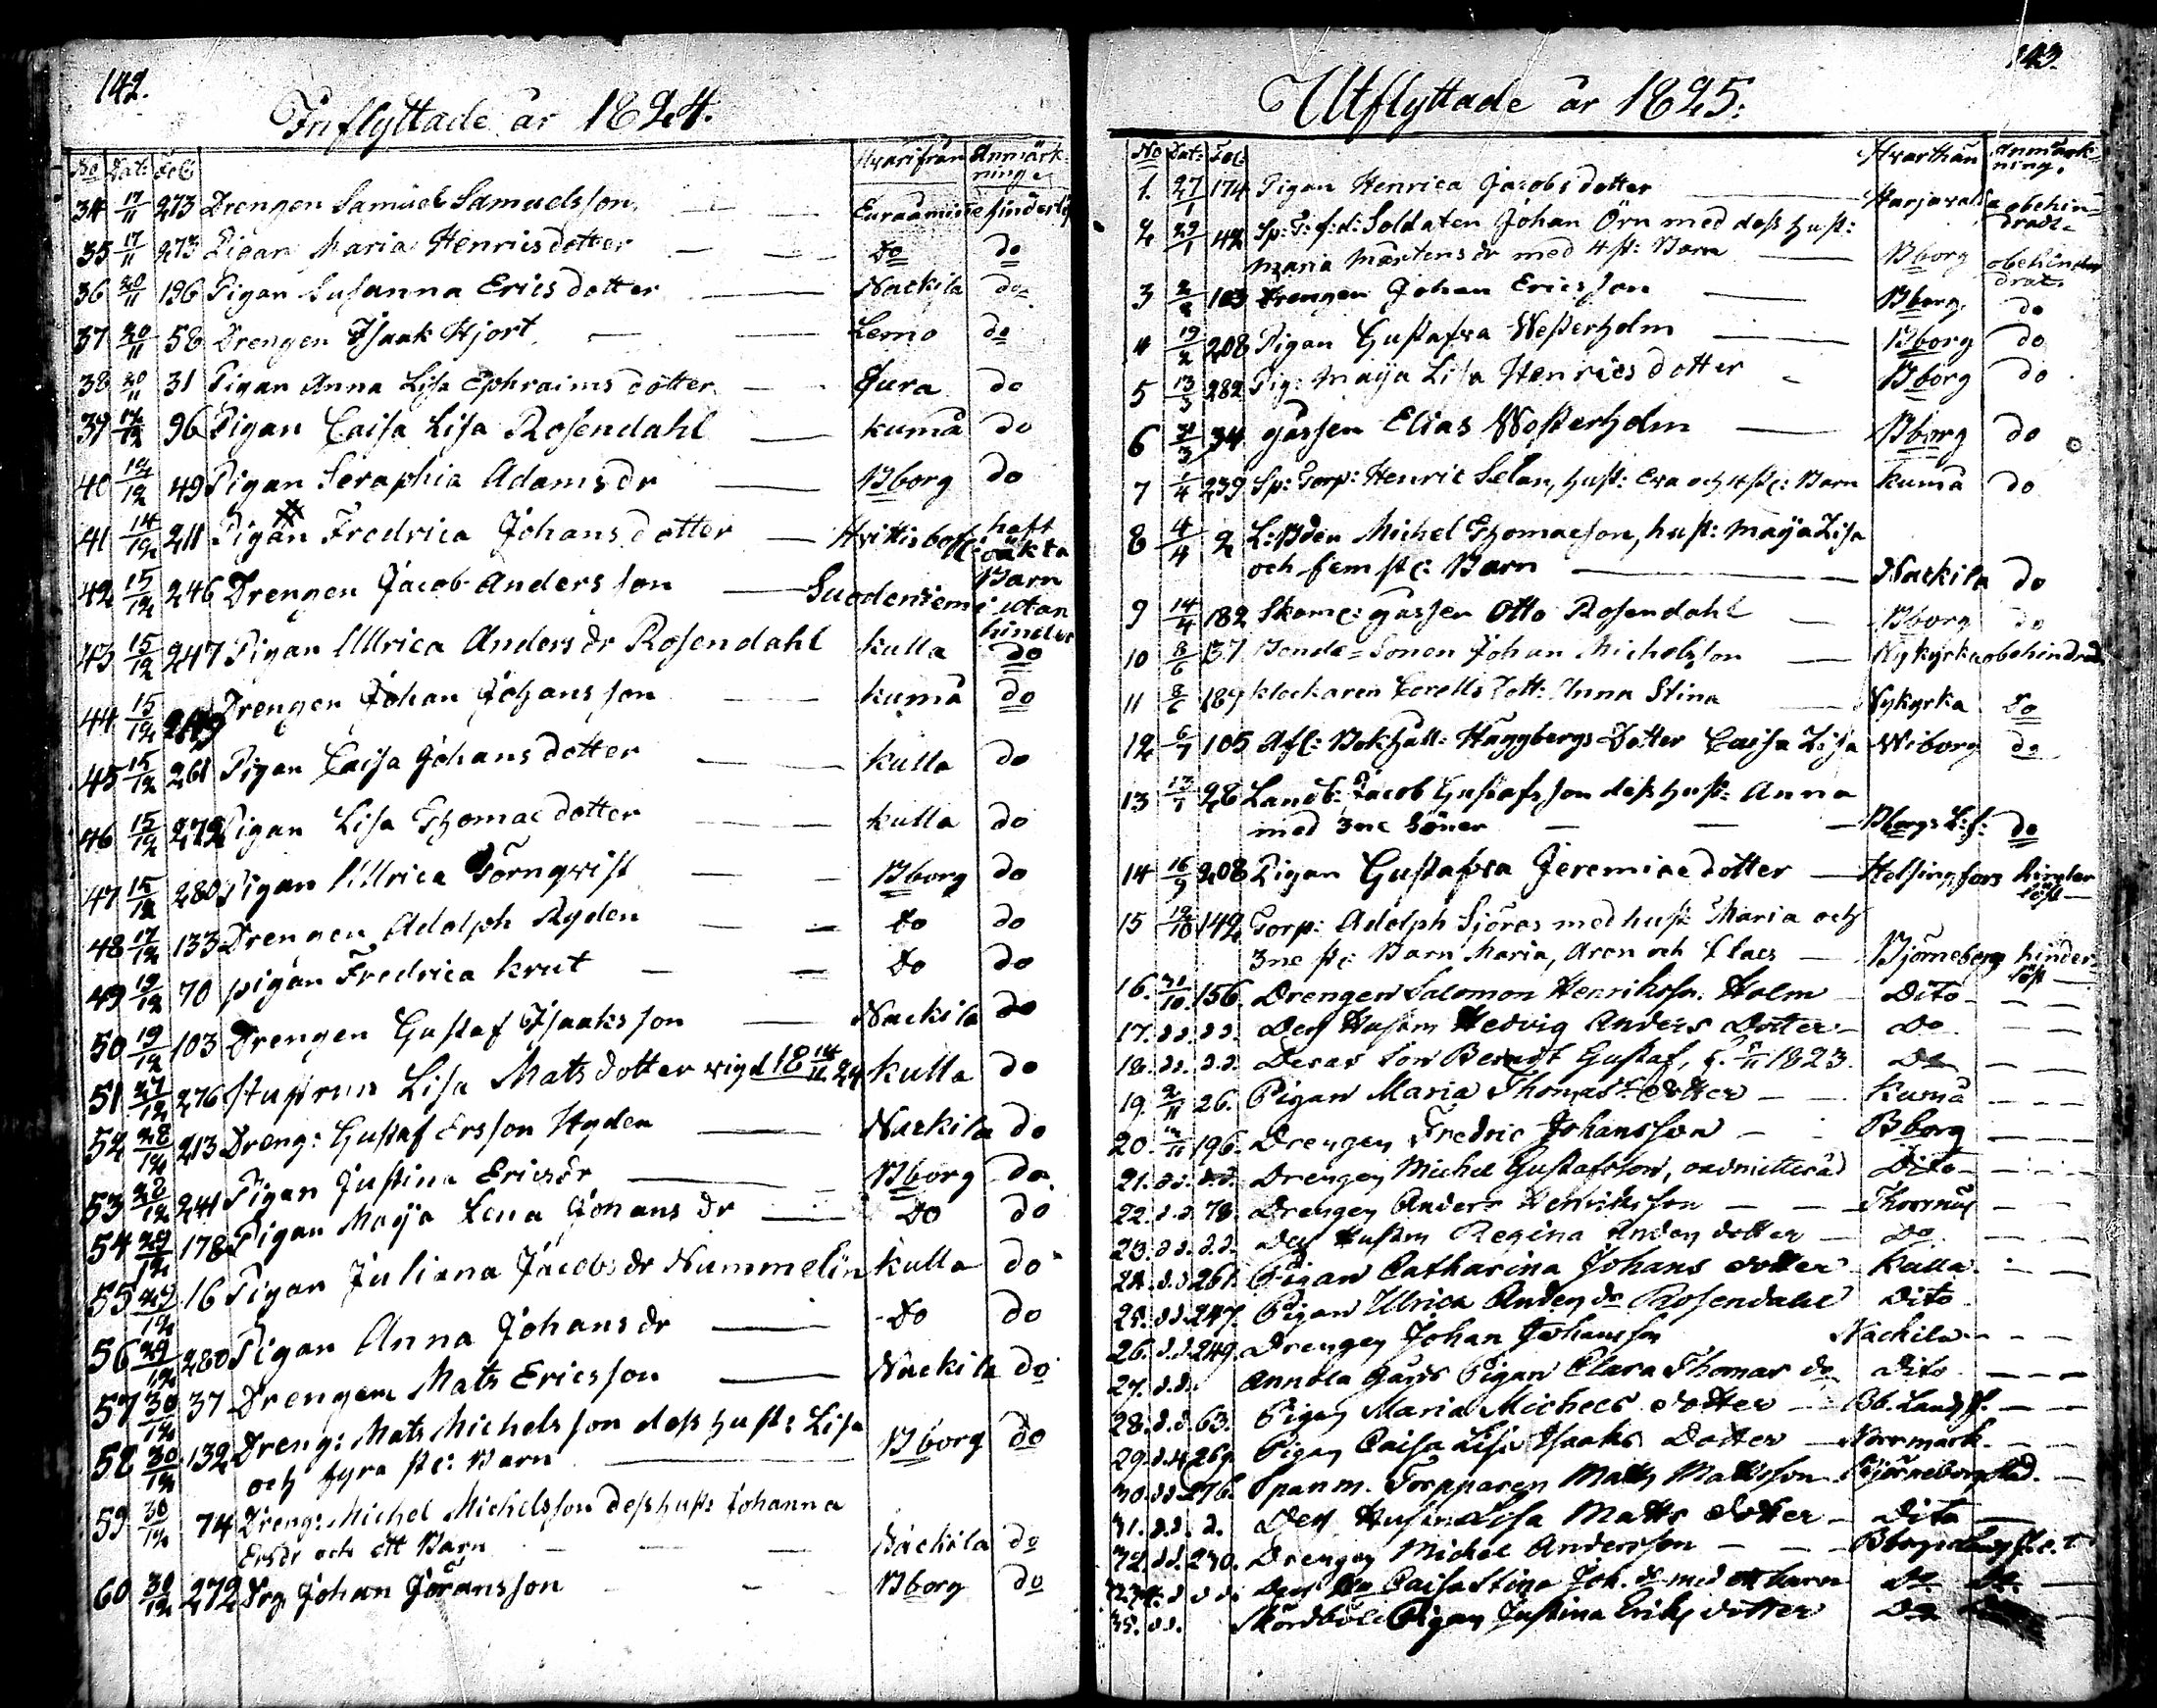 142.
Inflyttade år 1824.
No Dat: Fol: Hvarifrån Anmärkning
34 17/11 273 Drengen Samuel Samuelsson Euraåminne hinderlöst
35 17/11 273 Pigan Maria Henricsdotter Do do
36 20/11 196 Pigan Susanna Ericsdotter Nackila do
37 20/11 58 Drengen Isaak Hjort Lemo do
38 20/11 31 Pigan Anna Lisa Ephraimsdotter Eura do
39 12/12 96 Pigan Caisa Lisa Rosendahl Kumå do
40 12/12 49 Pigan Seraphia Adamsdr Bborg do
41 14/12 211 Pigan Fredrica Johansdotter Hvittisbofj: haft oäkta
42 15/12 246 Drengen Jacob Andersson Suodeniemi Barn utan hinder
43 15/12 247 Pigan Ullrica Andersdr Rosendahl Kulla do
44 15/12 249 Drengen Johan Johansson Kumå do
45 15/12 261 Pigan Caisa Johansdotter Kulla do
46 15/12 272 Pigan Lisa Thomaedotter Kulla do
47 15/12 280 Pigan Ullrica Törnqvist Bborg do
48 17/12 133 Drengen Adolph Ryden Do do
49 19/12 70 pigan Fredrica Krut Do do
50 19/12 103 Drengen Gustaf Isaksson Nackila do
51 27/12 276 Hustrun Lisa Matsdotter vigd 18 14/11 24 Kulla do
52 28/12 213 Dreng: Gustaf Ersson Hyden Nackila do
53 28/12 241 Pigan Justina Ericsdr Bborg do
54 29/12 178 Pigan Maija Lena Johansdr Do do
55 29/12 16 Pigan Juliana Jacobsdr Nummelin Kulla do
56 29/12 280 Pigan Anna Johansdr Do do
57 30/12 37 Drengen Mats Ericsson Nackila do
58 30/12 132 Dreng: Mats Michelsson dess hust: Lisa
och fyra st: Barn Bborg do
59 30/12 74 Dreng: Michel Michelsson dess hust: Johanna
Ersdr och ett Barn Nackila do
60 30/12 272 Drg Johan Göransson Bborg do
143.
Utflyttade år 1825.
No Dat: Fol: Hvarthän Anmärkning.
1. 27/1 174 Pigan Henrica Jacobsdotter Harjavalda obehindrade
2 29/1 42 Sp: T: f:d: Soldaten Johan Örn med dess hust:
Maria Mårtensdr med 4 st: Barn Bborg obehindrat
3 103 Drengen Johan Ericsson Bborg do
4 208 Pigan Gustafva Westerholm Bborg do
5 13/3 282 Pig: Maija Lisa Henricsdotter Bborg do
6 34 gossen Elias Westerholm Bborg do
7 1/4 239 Sp: Torp: Henric Selan, hust: Eva och 4 st: Barn Kumå do
8 4/4 2 L:Bden Michel Thomaeson, hust: Maija Lisa
och fem st: Barn Nackila do
9 14/4 182 Skom: gossen Otto Rosendahl Bborg do
10 8/6 137 Bonde-Sonen Johan Michelsson Nykyrka obehindrad
11 8/6 189 Klockaren Corells Dott: Anna Stina Nykyrka do
12 6/7 105 Afl: Bokhåll: Häggbergs Dotter Caisa Lisa Wiborg do
13 28 Landb: Jacob Gustafsson dess hust: Anna
med 3ne Söner Bborgs L:f: do
14 16/9 208 Pigan Gustafva Jeremiaedotter Helsingfors hinderlöst
15 142 Torp: Adolph Sjöros med hust: Maria och
3ne st: Barn Maria, Aron och Claes Björneborg hinderlöst
16. 31/10 156. Drengen Salomon Henriksson Holm Dito
17. d.d. d.d. Dess Hustru Hedvig Anders Dotter Do
18. d.d. d.d. Deras Son Berndt Gustaf, f. 1823. Do
19. 2/11 26. Pigan Maria Thomasdotter Kumå
20. 196. Drengen Fredric Johansson Bborg
21. d.d. d.d. Drengen Michel Gustafsson, oadmitterad Dito
22. d.d. 78. Drengen Anders Henriksson
23. d.d. d.d. Dess Hustru Regina Anders dotter Do
24. d.d. 261. Pigan Catharina Johans dotter Kulla
25. d.d. 247. Pigan Ullrica Anders dr Rosendahl Dito
26. d.d. 249. Drengen Johan Johansson Nackila
27. d.d. Annola Gårds Pigan Clara Thomas dr Dito
28. d.d. 63. Pigan Maria Michels dotter Bb. Landsf.
29. d.d. 269. Pigan Caisa Lisa Isaaks Dotter Norrmark
30. d.d. 276. Spanm. Torpparen Matts Mattsson Björneborg stad
31. d.d. d. Dess Hustru Lisa Matts dotter Dito
32. d.d. 230. Drengen Michel Andersson
Dess Caisa Stina Joh. dr med ett barn Do Do
35. d.d. Skördböle Pigan Justina Eriks dotter Do